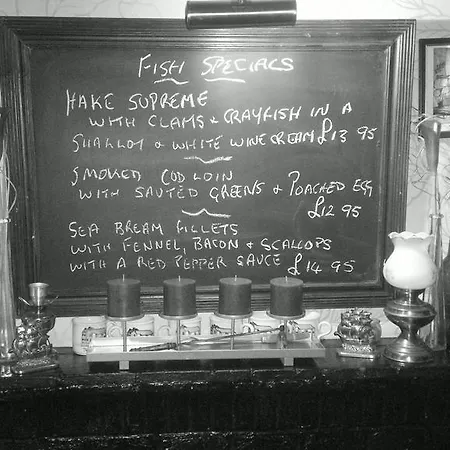 FISH SPECIALS
HAKE SUPREME
WITH CLAMS & CRAYFISH IN A
SHALLOT & WHITE WINE CREAM £13 95
SMOKED COD LOIN
WITH SAUTED GREENS & POACHED EGG
£12 95
SEA BREAM FILLETS
WITH FENNEL, BACON & SCALLOPS
WITH A RED PEPPER SAUCE £14 95